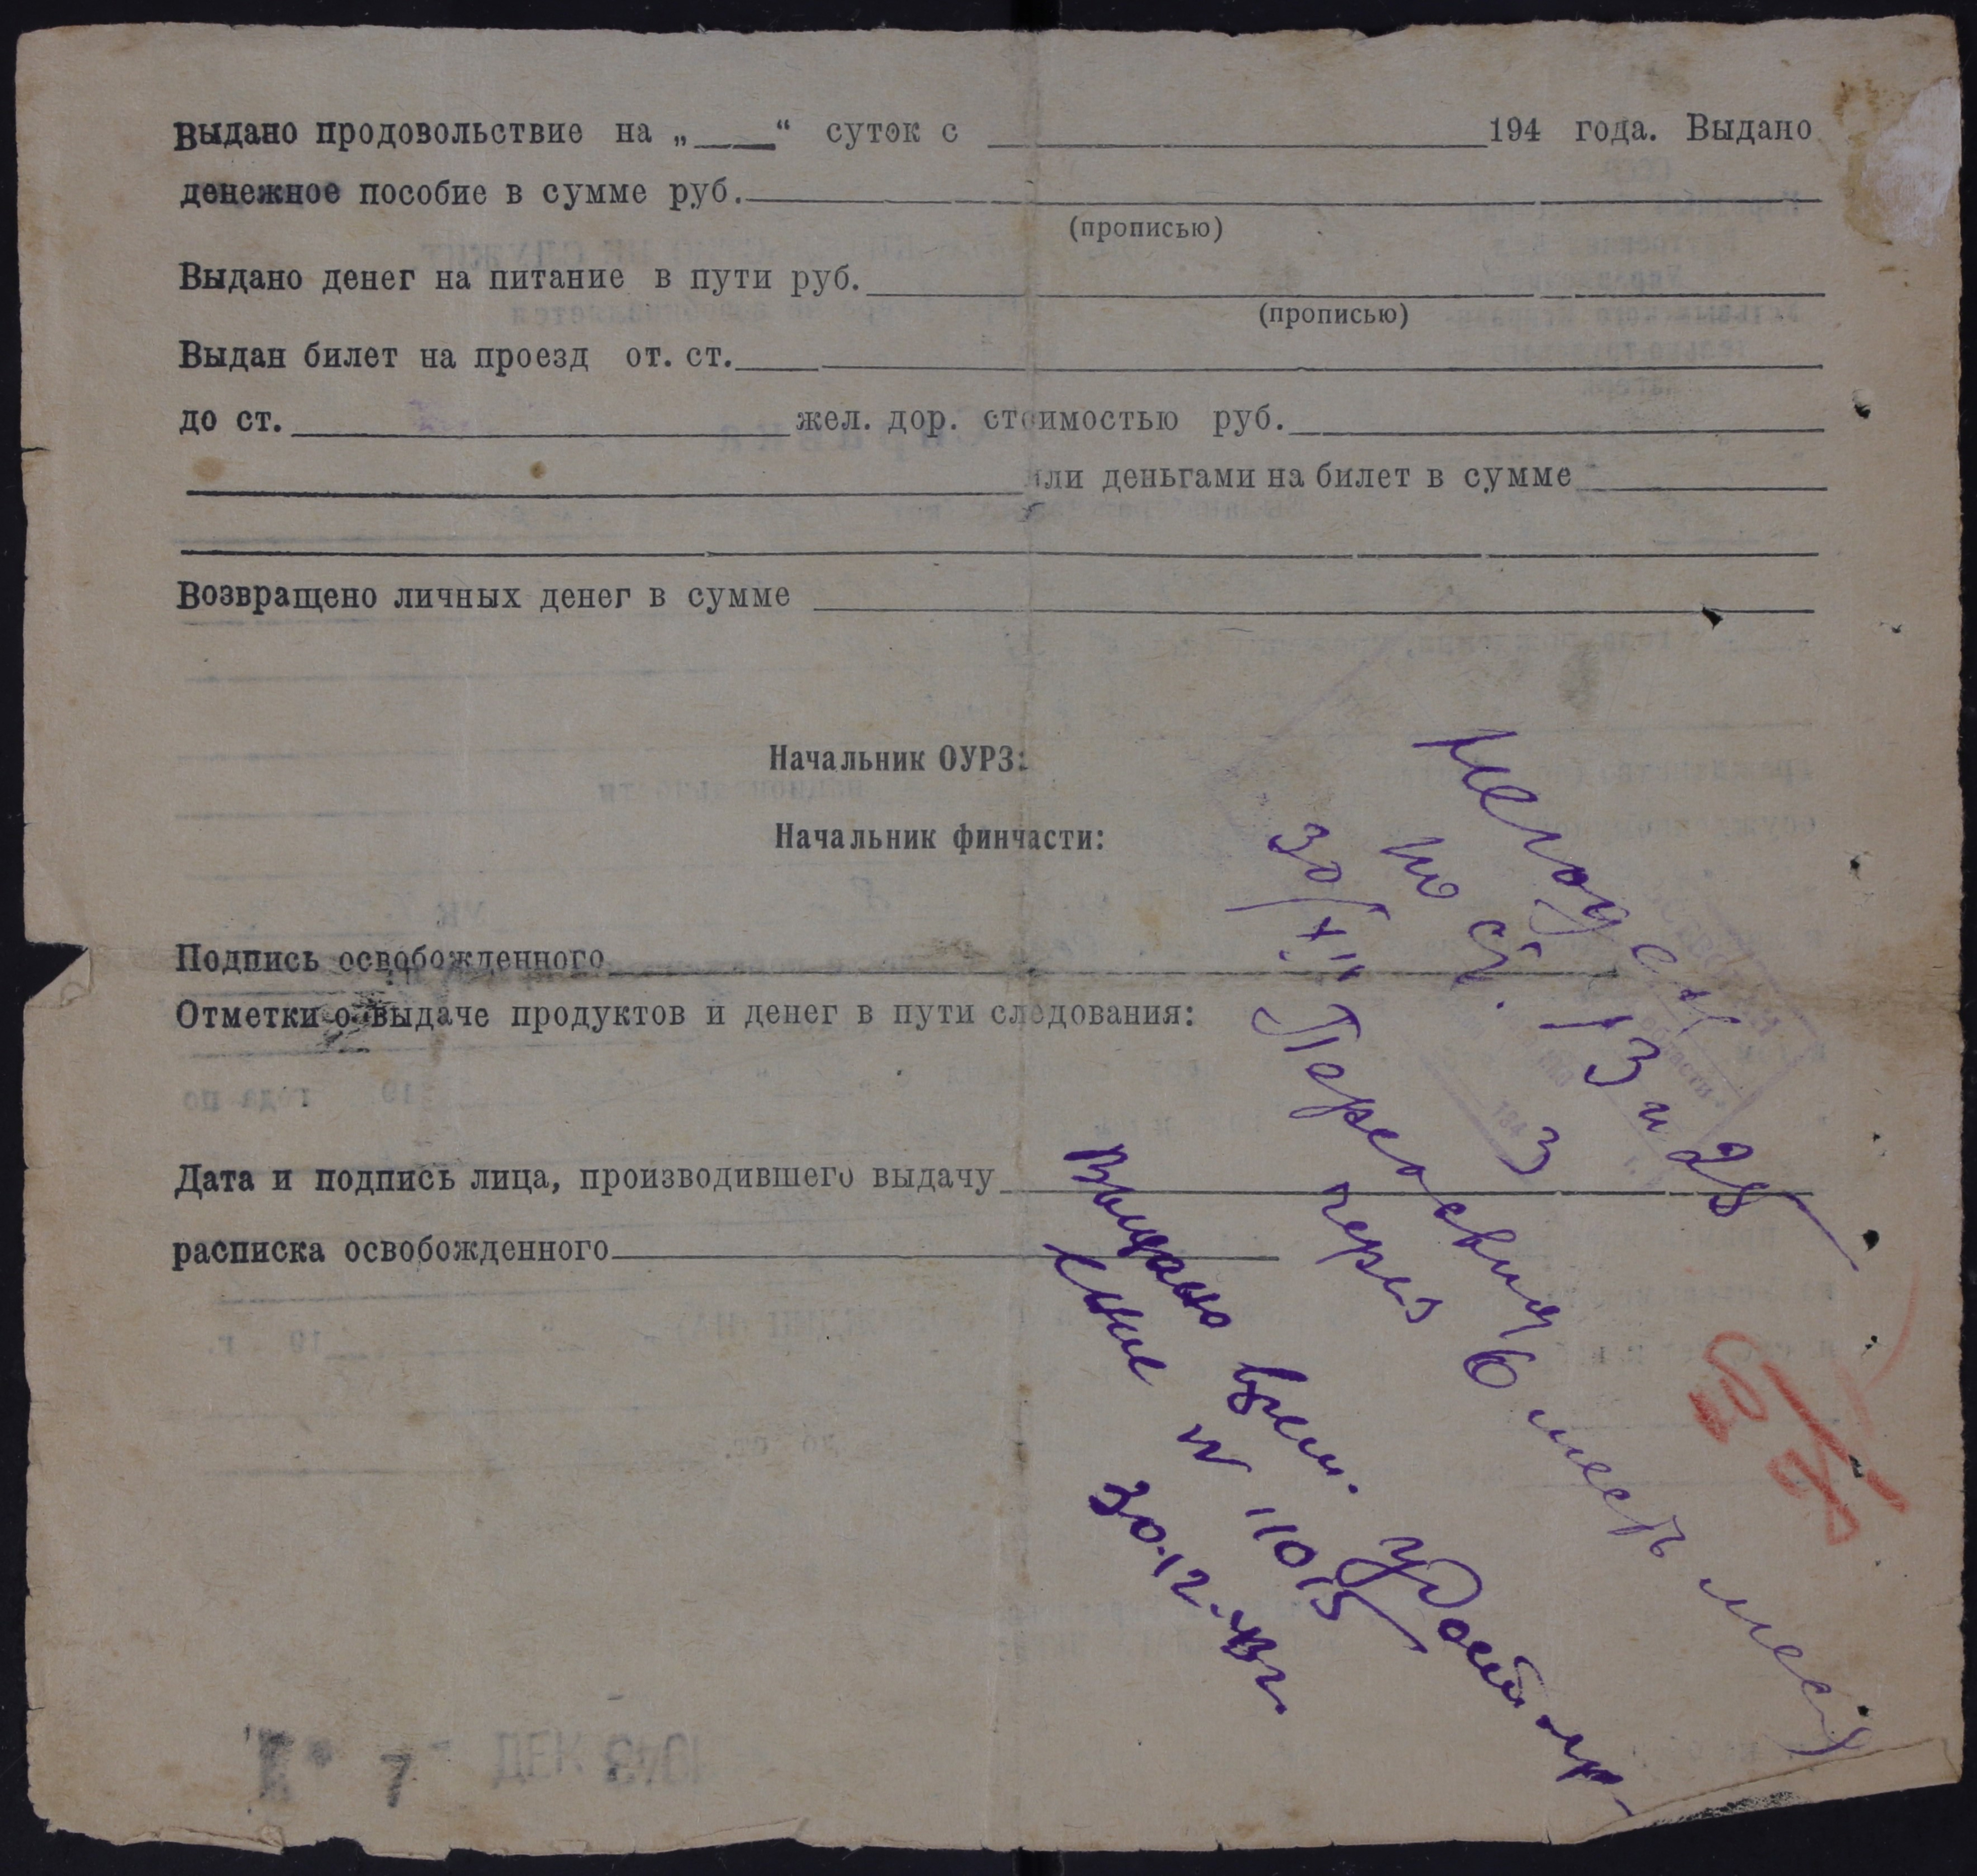 Выдано продовольствие на „____“ суток с ____ 194 года. Выдано
денежное пособие в сумме руб.
(прописью)
Выдано денег на питание в пути руб.
(прописью)
Выдан билет на проезд от. ст.
до ст. ____ жел. дор. стоимостью руб.
или деньгами на билет в сумме
Возвращено личных денег в сумме
Начальник ОУРЗ:
Начальник финчасти:
Подпись освобожденного
Отметки о выдаче продуктов и денег в пути следования:
Дата и подпись лица, производившего выдачу
расписка освобожденного
по ст. 3
30/XII
через 6 мест мес
Выдано врем. удост
N 11015
30.12.43г.
7 ДЕК 1943